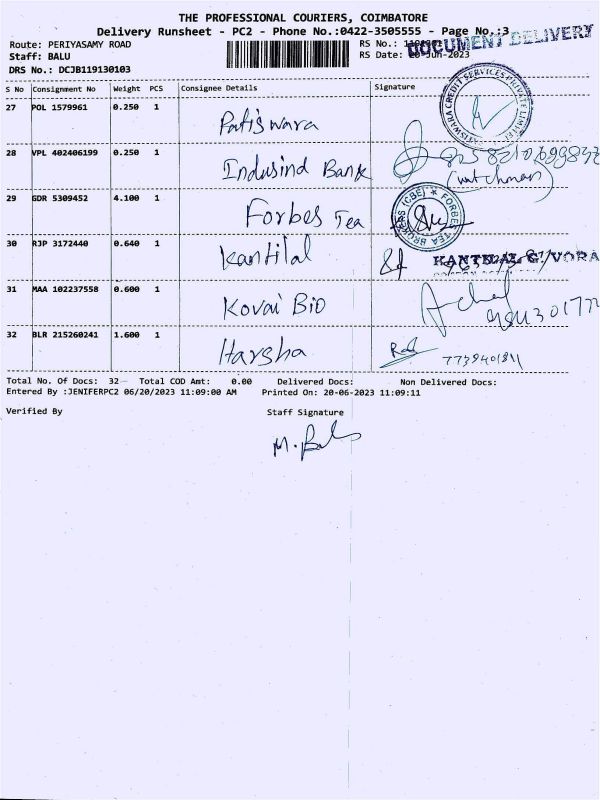 THE PROFESSIONAL COURIERS, COIMBATORE
Delivery Runsheet - PC2 - Phone No.:0422-3505555 - Page No.:3
DOCUMENT DELIVERY
Route: PERIYASAMY ROAD
RS No.:
Staff: BALU
RS Date: 20-Jun-2023
DRS No.: DCJB119130103
S No Consignment No Weight PCS Consignee Details Signature
27 POL 1579961 0.250 1 Patiswara
28 VPL 402406199 0.250 1 Indusind Bank
(watchman)
29 GDR 5309452 4.100 1 Forbes Tea
FORBES TEA BROKERS (CBE)
30 RJP 3172440 0.640 1 Kantilal KANTILAL G. VORA
31 MAA 102237558 0.600 1 Kovai Bio
32 BLR 215260241 1.600 1 Harsha
Total No. Of Docs: 32 Total COD Amt: 0.00 Delivered Docs: Non Delivered Docs:
Entered By :JENIFERPC2 06/20/2023 11:09:00 AM Printed On: 20-06-2023 11:09:11
Verified By Staff Signature